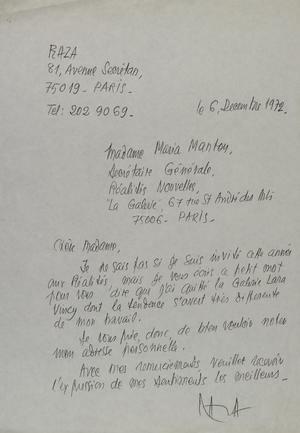 RAZA
81, Avenue Secrétan,
75019 - PARIS -
Tel: 202 90 69 -
le 6, Decembre 1972
Madame Maria Manton,
Secrétaire Générale,
Réalités Nouvelles,
"La Galerie", 67 rue St André des Arts
75006 - PARIS -
Chère Madame,
Je ne sais pas si je suis invité cette année
aux Réalités, mais je vous écris ce petit mot
pour vous dire que j'ai quitté la Galerie Lara
Vincy dont la tendence s'avert très differente
de mon travail.
Je vous prie, donc, de bien vouloir noter
mon adresse personnelle.
Avec mes remerciements veuillez recevoir
l'expression de mes sentiments les meilleurs -